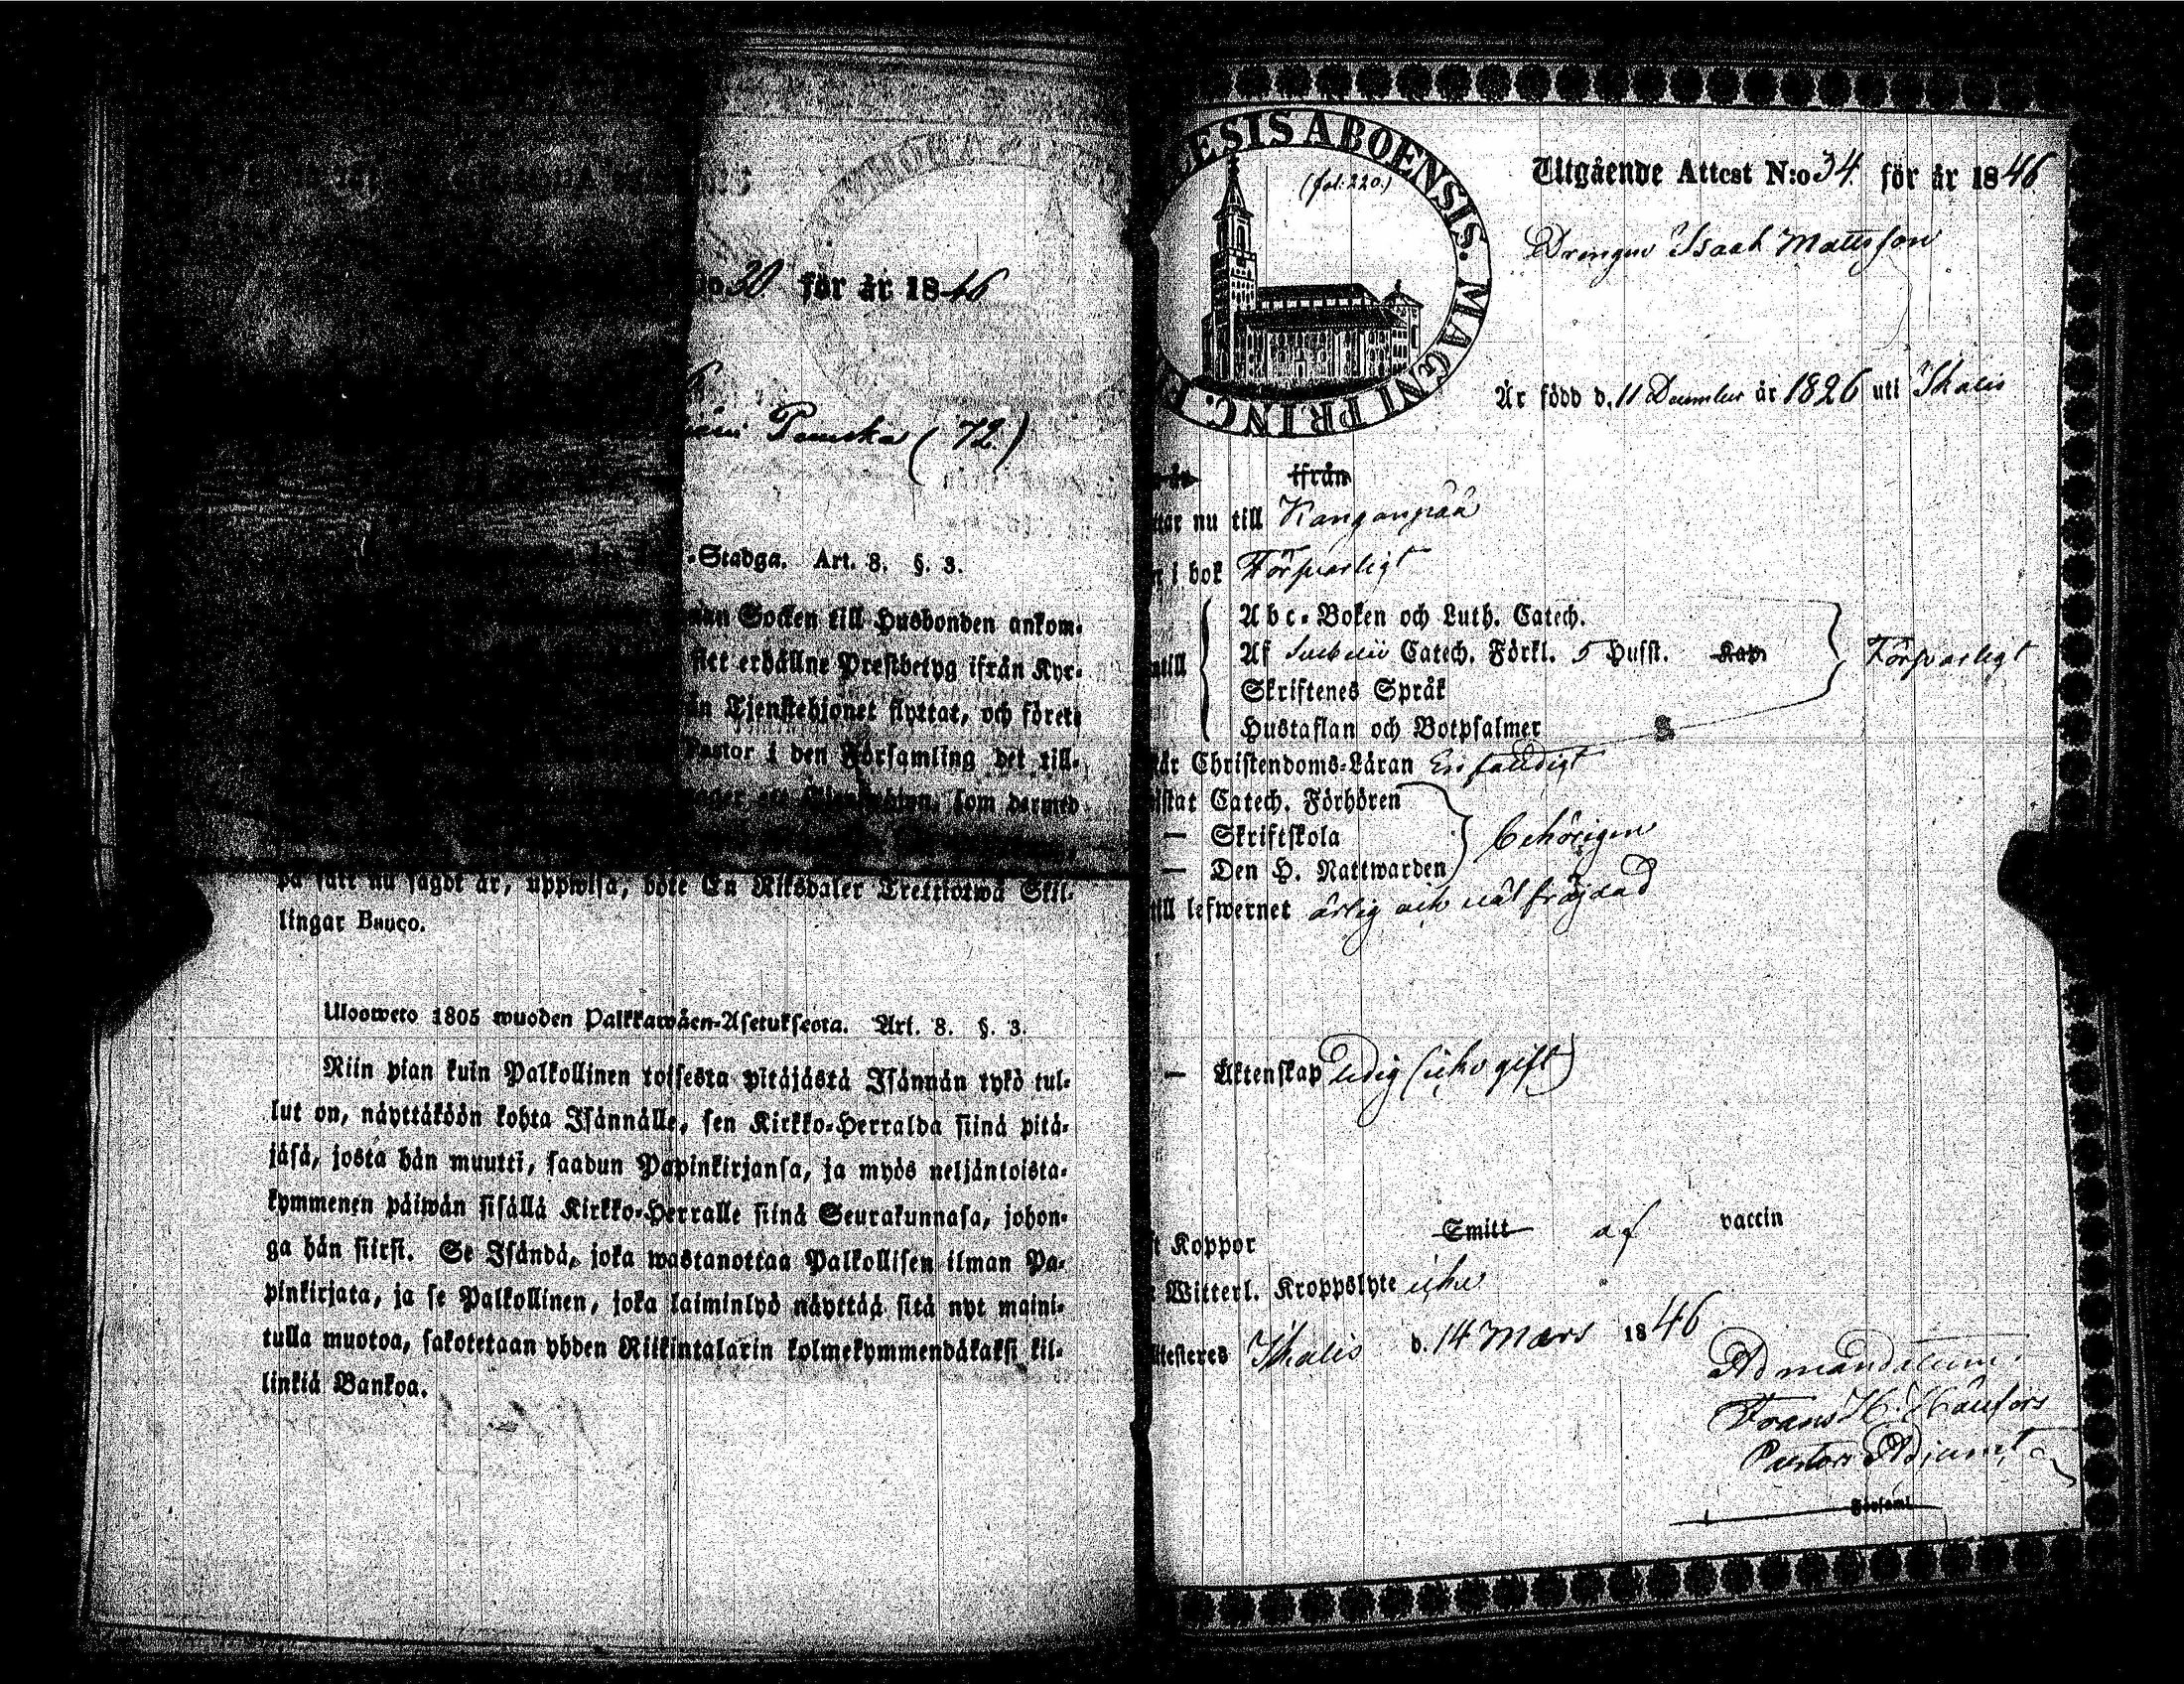 30. för år 1846
Pouska (72.)
-Stadga. Art. 8. §. 3.
Socken till Husbonden ankom-
sitt erhållne Prestbetyg ifrån Kyr-
Tjenstehjonet flyttat, och förete
Pastor i den Församling det till-
som dermed
på sätt nu sagdt är, uppwisa, böte En Riksdaler Trettiotwå Skil-
lingar Banco.
Ulosweto 1805 wuoden Palkkawäen-Asetuksesta. Art. 8. §. 3.
Niin pian kuin Palkollinen toisesta pitäjästä Isännän tykö tul-
lut on, näyttäköön kohta Isännälle, sen Kirkko-Herralda siinä pitä-
jäsä, josta hän muutti, saadun Papinkirjansa, ja myös neljäntoista-
kymmenen päiwän sisällä Kirkko-Herralle siinä Seurakunnasa, johon-
ga hän siirsi. Se Isändä, joka wastanottaa Palkollisen ilman Pa-
pinkirjata, ja se Palkollinen, joka laiminlyö näyttää sitä nyt maini-
tulla muotoa, sakotetaan yhden Riikintalarin kolmekymmendäkaksi kil-
linkiä Bankoa.
ESIS ABOENSIS. MAGNI PRINC. F
(fol. 220.)
Utgående Attest N:o 34. för år 1846
Drengen Isaak Mattsson
Är född d. 11 December år 1826 uti Ikalis
ifrån
nu till Kanganpää
i bok Försvarligt
Abc-Boken och Luth. Catech.
Af Svebelii Catech. Förkl. 5 Hufst. Kap. Försvarligt
Skriftenes Språk
Hustaflan och Botpsalmer
Christendoms-Läran Enfaldigt
Catech. Förhören
— Skriftskola behörigen
— Den H. Nattwarden
till lefwernet ärlig och väl fräjdad
— Äktenskap ledig (icke gift)
Koppor Smitt af vaccin
Witterl. Kroppslyte icke
Ikalis d. 14 Mars 1846
Ad mandatum.
Frans H.
Pastors Adjunct
Församl.